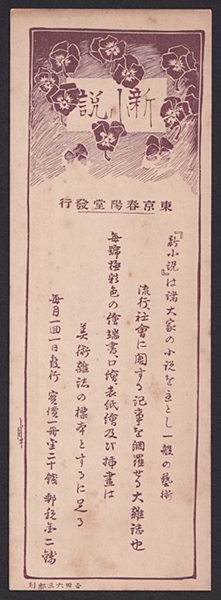 新小説
東京春陽堂發行
『新小説』は諸大家の小説を主とし一般の藝術
流行社會に関する記事を網羅せる大雜誌也
毎號極彩色の繪端書口繪表紙繪及び挿畫は
美術雜誌の標本とするに足る
毎月一回一日發行 實價一冊金二十錢 郵税金二錢